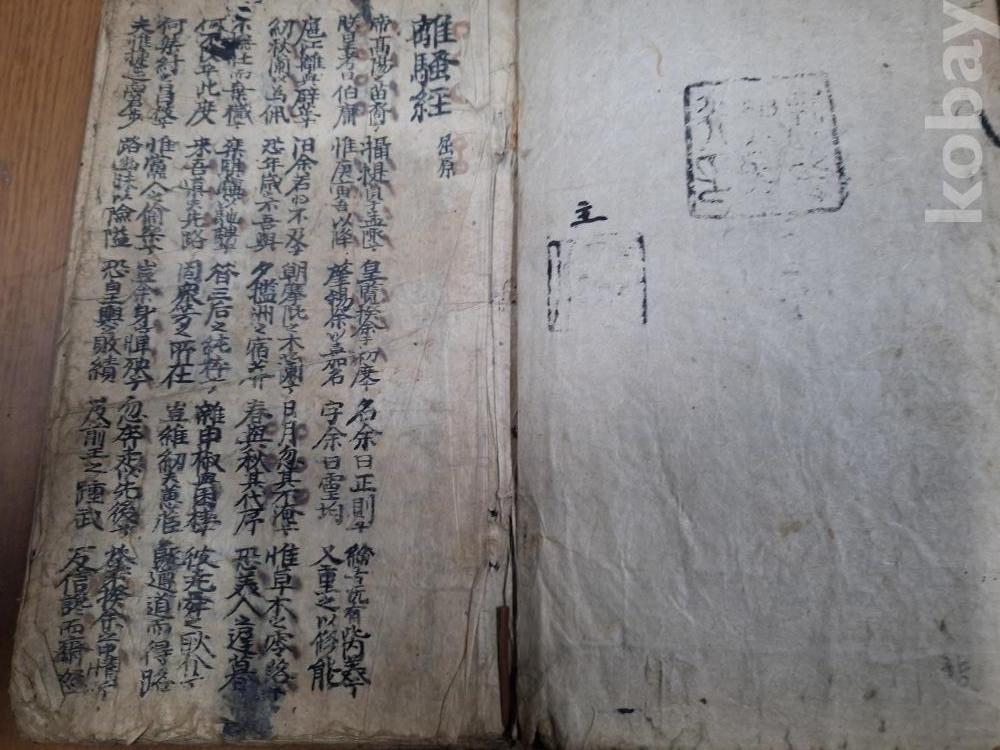 離騷經 屈原
帝高陽之苗裔兮 攝提貞孟陬 皇覽揆余初度兮 名余曰正則兮 紛吾旣有此內美兮
朕皇考曰伯庸 惟庚寅吾以降 肇錫余以嘉名 字余曰靈均 又重之以修能
扈江離與辟芷兮 汨余若將不及兮 朝搴阰之木蘭兮 日月忽其不淹兮 惟草木之零落兮
紉秋蘭以爲佩 恐年歲不吾與 夕攬洲之宿莽 春與秋其代序 恐美人之遲暮
不撫壯而棄穢兮 乘騏驥以馳騁兮 昔三后之純粹兮 雜申椒與菌桂兮 彼堯舜之耿介兮
何不改乎此度 來吾導夫先路 固衆芳之所在 豈維紉夫蕙茝 旣遵道而得路
何桀紂之昌披兮 惟黨人之偸樂兮 豈余身之憚殃兮 忽奔走以先後兮 荃不揆余之中情兮
夫惟捷徑以窘步 路幽昧以險隘 恐皇輿之敗績 及前王之踵武 反信讒而齌怒
主
kobay